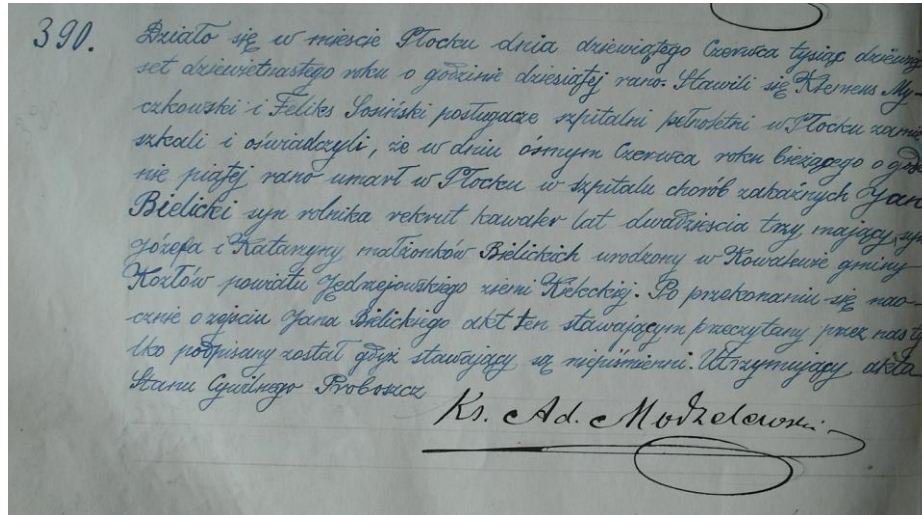 390. Działo się w mieście Płocku dnia dziewiątego Czerwca tysiąc dziewięć
set dziewiętnastego roku o godzinie dziesiątej rano. Stawili się Klemens My-
czkowski i Feliks Sosiński posługacze szpitalni pełnoletni w Płocku zamie
szkali i oświadczyli, że w dniu ósmym Czerwca roku bieżącego o godzi
nie piątej rano umarł w Płocku w szpitalu chorób zakaźnych Jan
Bielicki syn rolnika rekrut kawaler lat dwadzieścia trzy mający, syn
Józefa i Katarzyny małżonków Bielickich urodzony w gminy
Kozłów powiatu Jędrzejowskiego ziemi Kieleckiej. Po przekonaniu się nao-
cznie o zejściu Jana Bielickiego akt ten stawającym przeczytany przez nas ty
lko podpisany został gdyż stawający są niepiśmienni. Utrzymujący akta
Stanu Cywilnego Proboszcz
Ks. Ad. Modzelewski